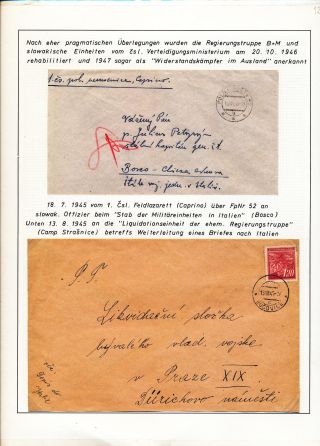 Nach eher pragmatischen Überlegungen wurden die Regierungstruppe B+M und
slowakische Einheiten vom Čsl. Verteidigungsministerium am 20. 10. 1946
rehabilitiert und 1947 sogar als "Widerstandskämpfer im Ausland" anerkannt
1. čs. pol. nemocnice, Caprino.
Vážený Pán
p. Julius
Bosco - Chiesa nuova
18. 7. 1945 vom 1. Čsl. Feldlazarett (Caprino) über FpNr 52 an
slowak. Offizier beim "Stab der Militäreinheiten in Italien" (Bosco)
Unten 13. 8. 1945 an die "Liquidationseinheit der ehem. Regierungstruppe"
(Camp Strašnice) betreffs Weiterleitung eines Briefes nach Italien
P. T.
1.20
Likvidační složka
bývalého vlad. vojska
v Praze XIX
Dürichovo náměstí